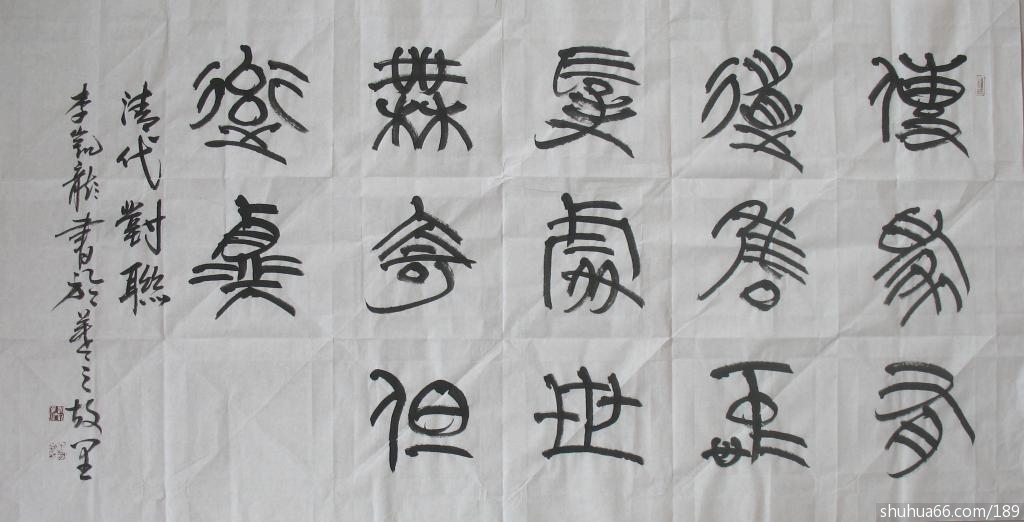 傳家有
道唯存
厚處世
無奇但
率真
清代對聯
李凱龍書於羲之故里
shuhua66.com/189